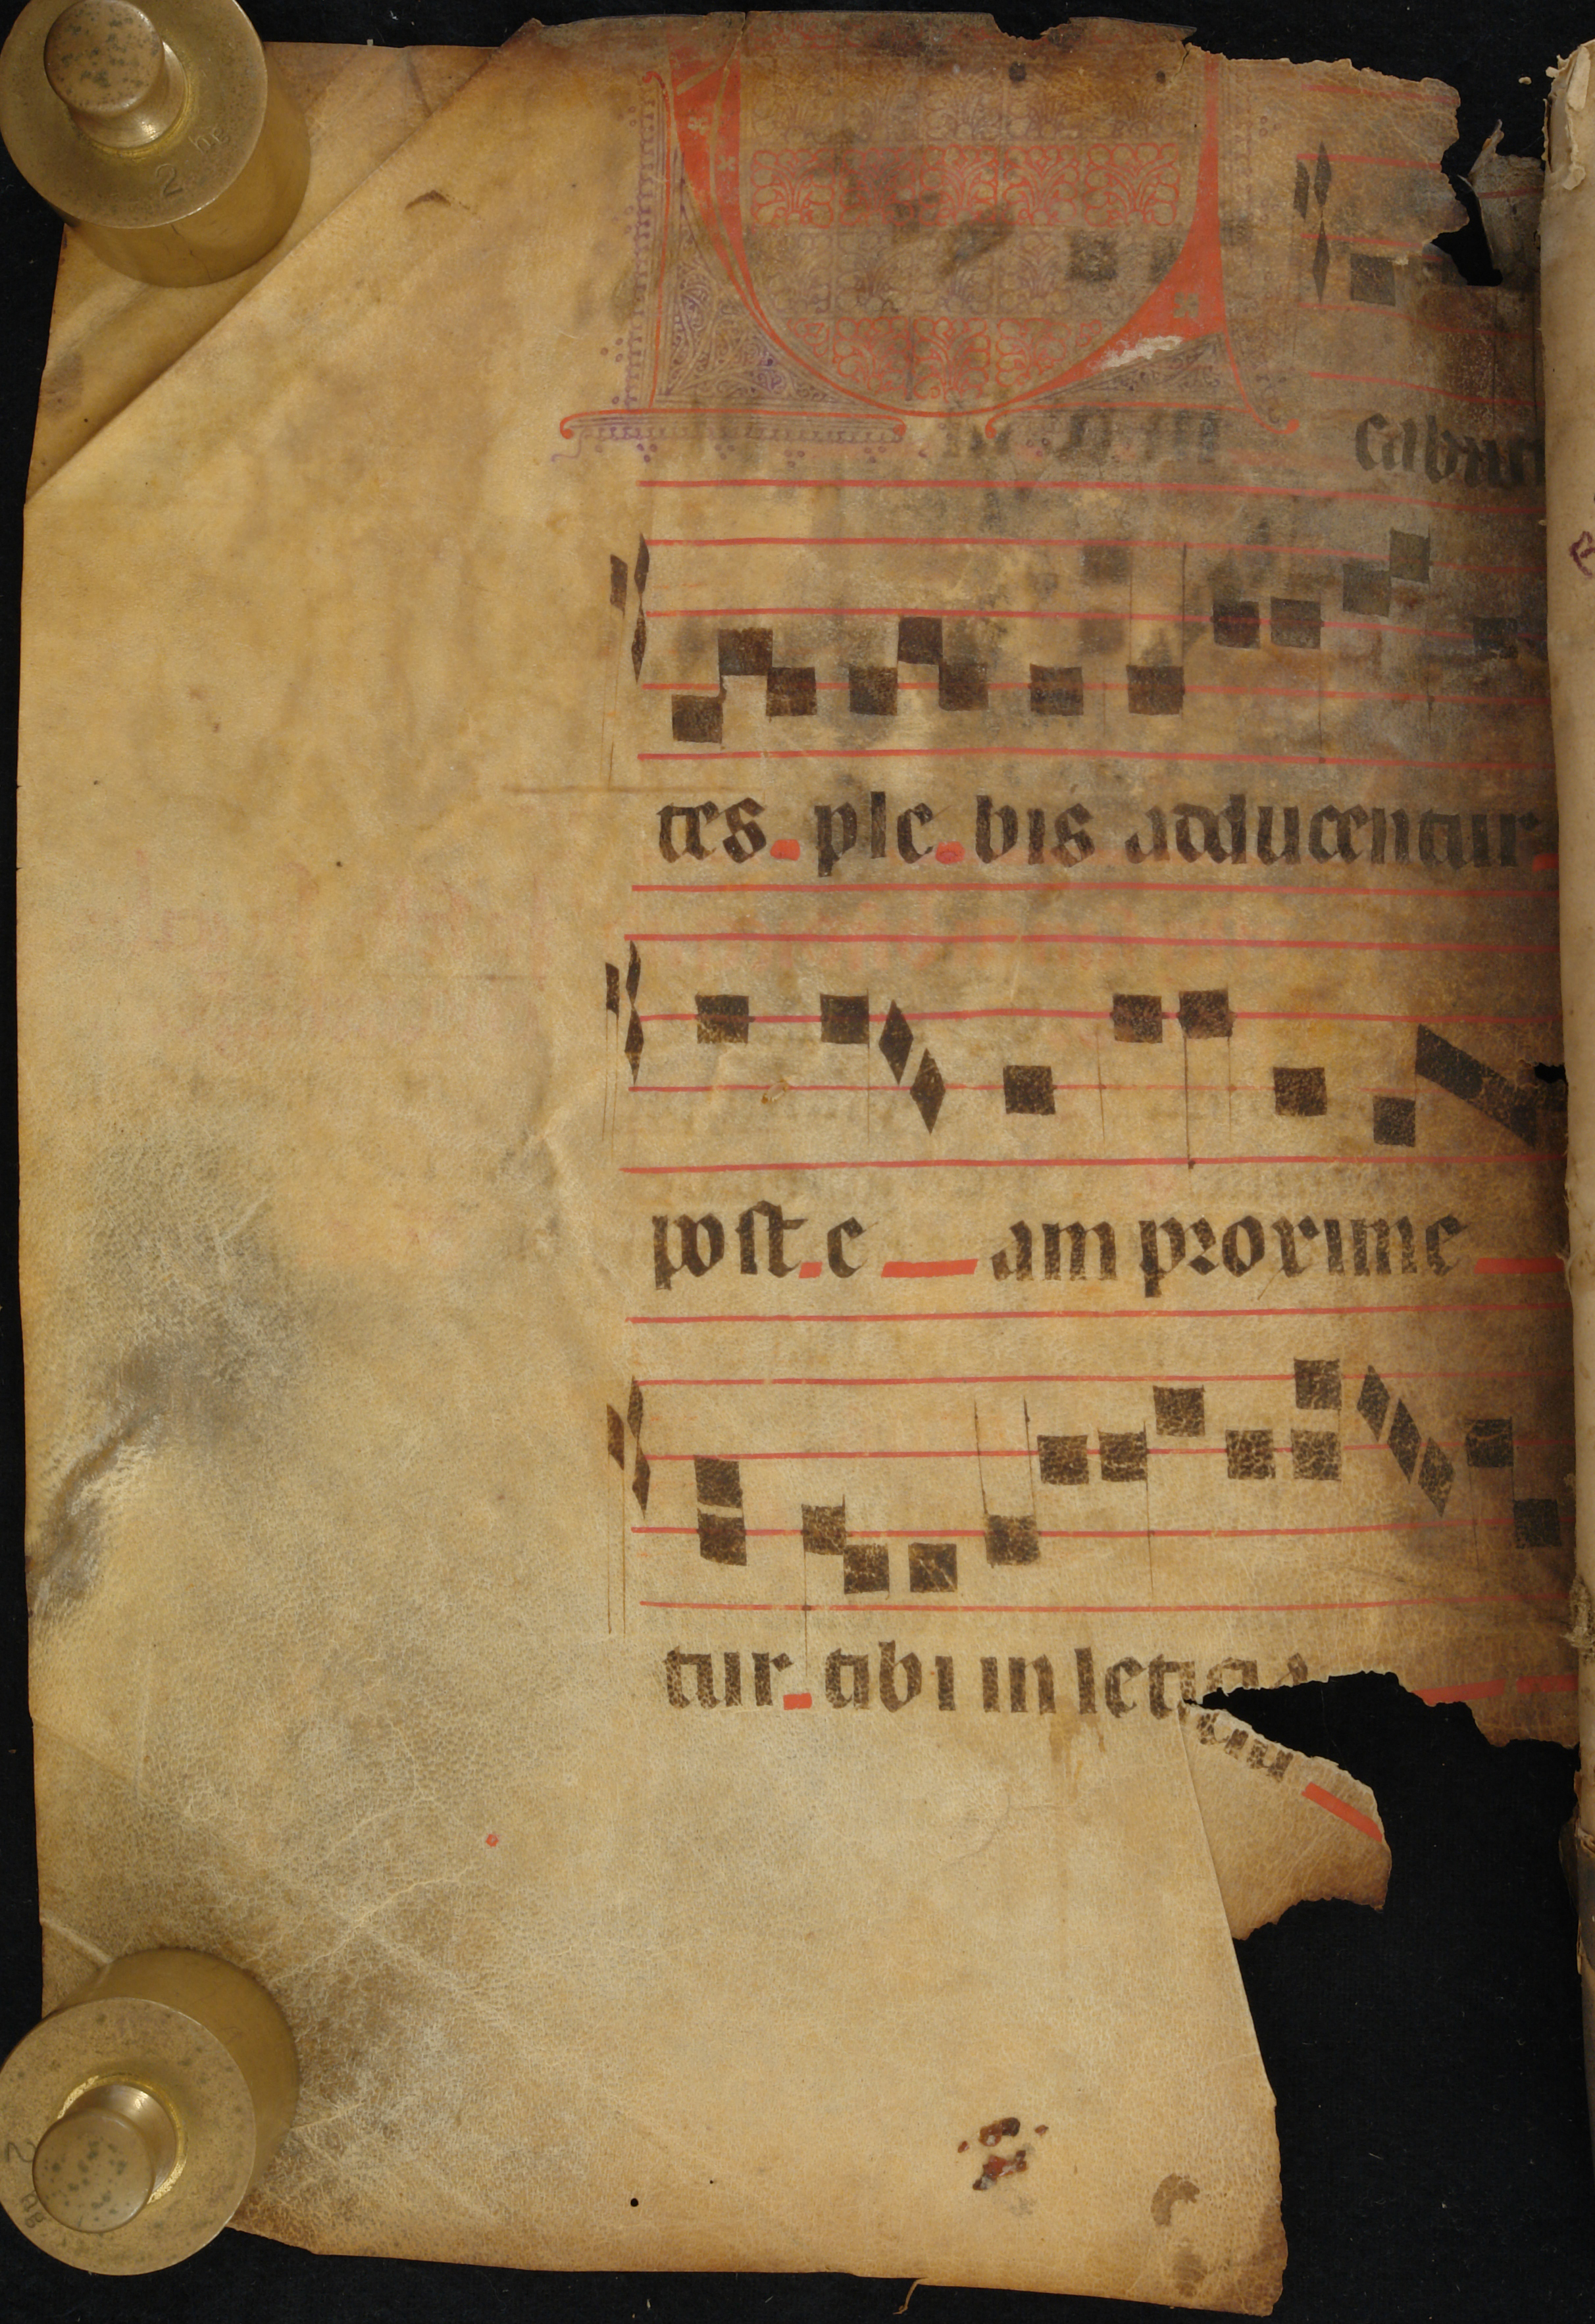 tum cabun
tes ple bis adducentur
post e am proxime
tur tibi in leticia